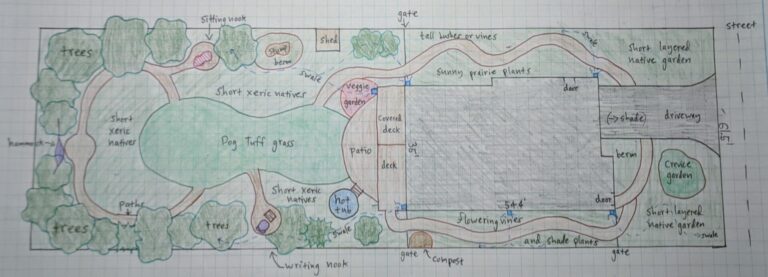 gate
street
Sitting nook
Shed
tall bushes or vines
swale
trees
stump
berm
swale
sunny prairie plants
Short layered
native garden
Short xeric natives
veggie
garden
door
Short
xeric
natives
Covered
deck
(-> shade)
driveway
hammock
Dog Tuff grass
patio
35'
65'
deck
berm
Crevice
garden
Short
xeric natives
hot
tub
54'
door
paths
flowering vines
Short layered
native garden
trees
trees
swale
and shade plants
swale
writing nook
gate
compost
gate